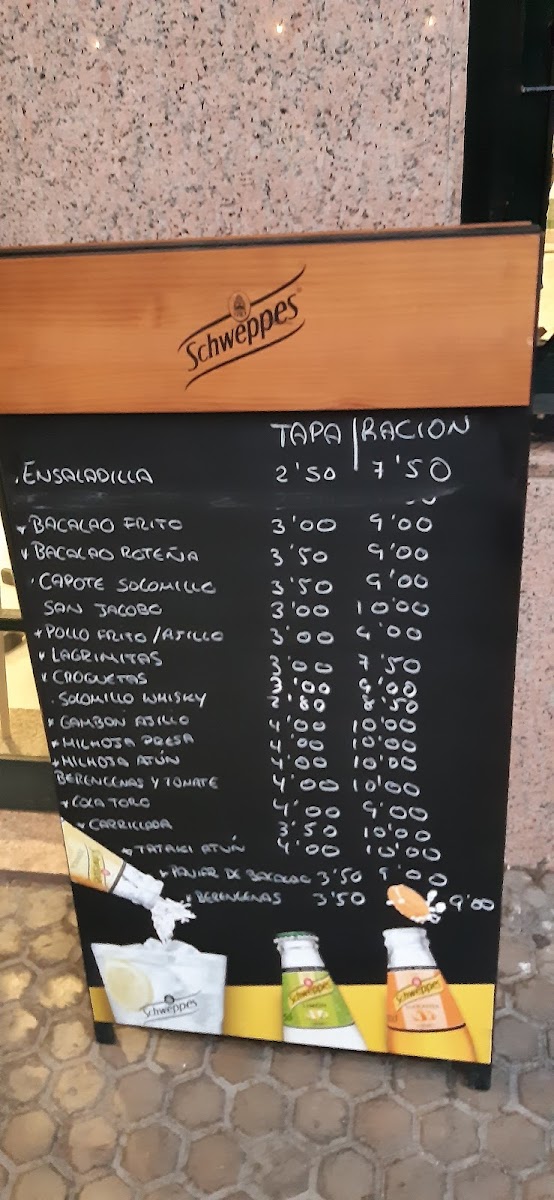 Schweppes
TAPA | RACION
. ENSALADILLA 2'50 7'50
BACALAO FRITO 3'00 9'00
BACALAO ROTEÑA 3'50 9'00
CAPOTE SOLOMILLO 3'50 9'00
SAN JACOBO 3'00 10'00
POLLO FRITO/AJILLO 3'00 9'00
LAGRIMITAS 3'00 7'50
CROQUETAS 3'00 9'00
. SOLOMILLO WHISKY 2'80 8'50
GAMBON AJILLO 4'00 10'00
MILHOJA PRESA 4'00 10'00
MILHOJA ATÚN 4'00 10'00
BERENGENAS Y TOMATE 4'00 10'00
COLA TORO 4'00 9'00
CARRILLADA 3'50 10'00
TATAKI ATÚN 4'00 10'00
PAVIAR DE BACALAO 3'50 9'00
BERENGENAS 3'50 9'00
Schweppes
Schweppes
Schweppes
Schweppes